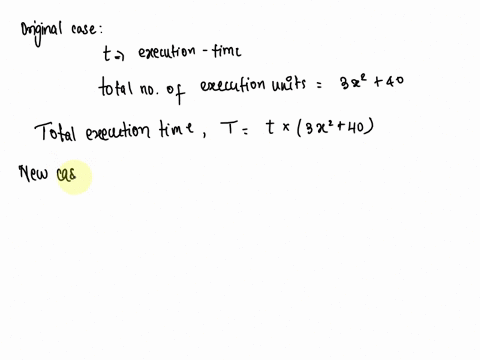 Original case:
t => execution-time
total no. of execution units = 3x² + 40
Total execution time, T = t × (3x² + 40)
New cas